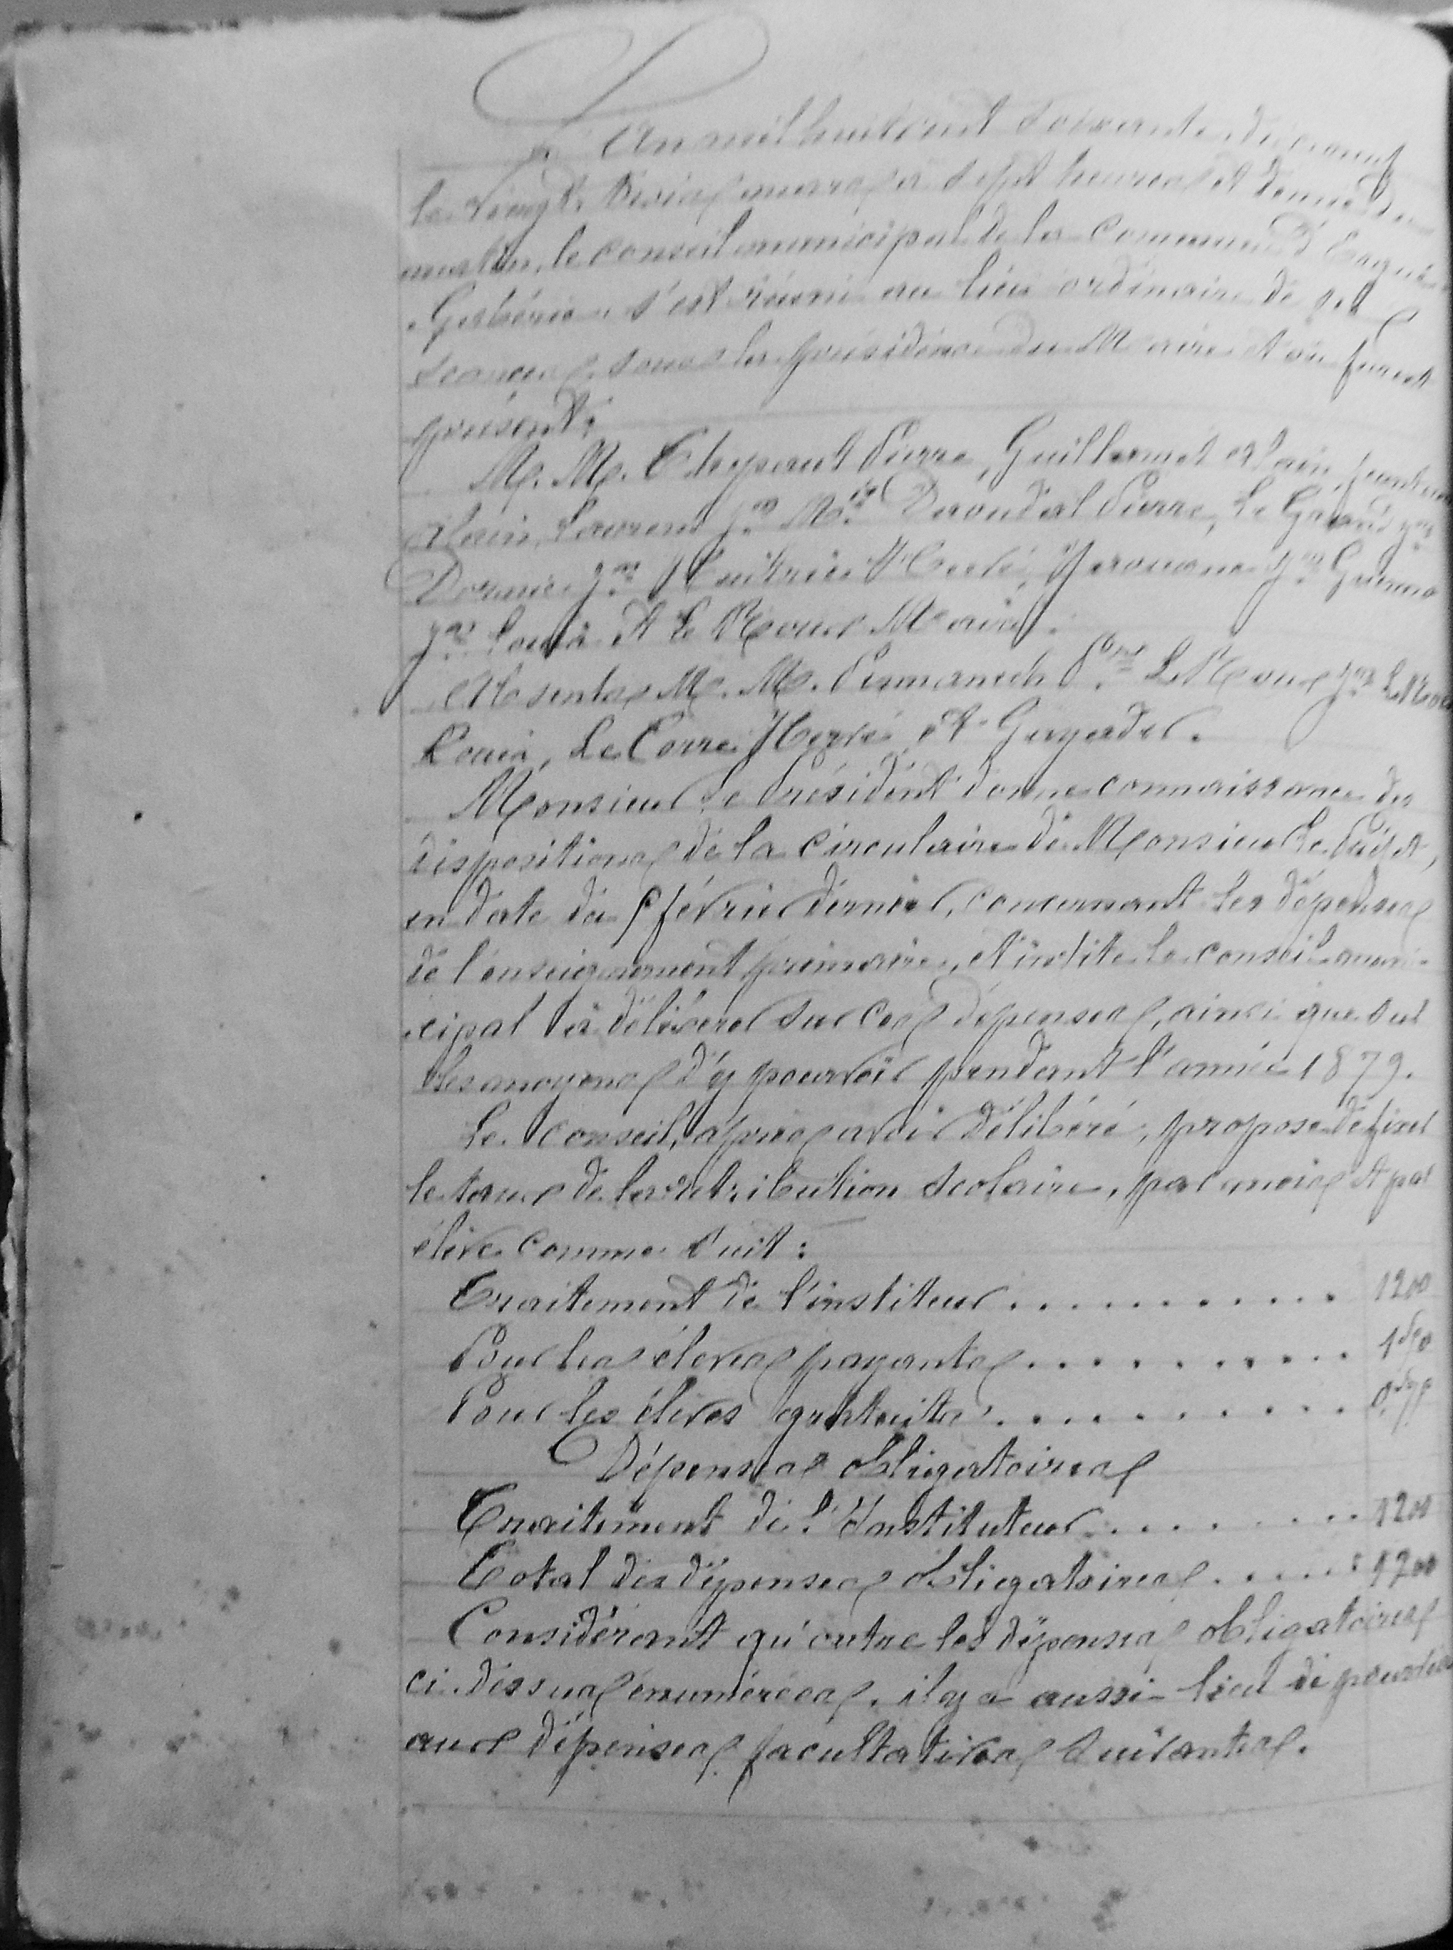 L'An mil huit cent soixante dix neuf
le vingt trois mars à sept heures et demie du
matin, le conseil municipal de la commune d'Ergué
Gabéric s'est réuni au lieu ordinaire de ses
séances, sous la présidence du Maire et où furent
présents:
M.M. Pierre, Guillermet Alain,
Alain, Laurent Jn Mie Pierre, Le Grand Jn
Jn Hervé, Jn
Jn Louis et Le Roux Maire.
Absents M.M. Le Roux Jn Le Roux
Louis, Le Corre Hervé et Guyader.
Monsieur le Président donne connaissance des
dispositions de la circulaire de Monsieur le Préfet,
en date du février dernier, concernant les dépenses
de l'enseignement primaire, et invite le conseil muni-
cipal à délibérer sur ces dépenses, ainsi que sur
les moyens d'y pourvoir pendant l'année 1879.
Le conseil, après avoir délibéré, propose de fixer
le taux de la rétribution scolaire, par mois et par
élève comme suit:
Traitement de l'institeur ........... 1200
Pour les élèves payants ........... 1,50
Pour les élèves gratuits ...........
Dépenses obligatoires
Traitement de l'Instituteur ........ 1200
Total des dépenses obligatoires ..... 1200
Considérant qu'outre les dépenses obligatoires
ci-dessus énumérées, il y a aussi lieu de pourvoir
aux dépenses facultatives suivantes.